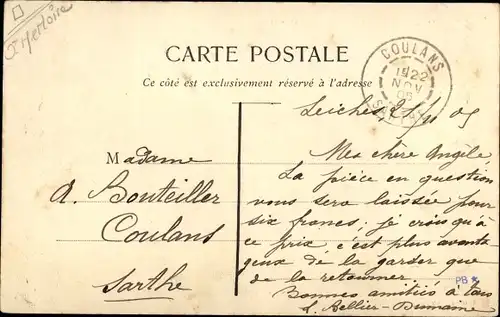 CARTE POSTALE
Ce côté est exclusivement réservé à l'adresse
COULANS
22
NOV
05
Madame
A. Bouteiller
Coulans
Sarthe
Ma chère Angèle
La pièce en question
vous sera laissée pour
six francs; je crois qu'à
ce prix c'est plus avanta
geux de la garder que
de la retourner.
Bonnes amitiés à tous
Bellier-Dumaine
PB